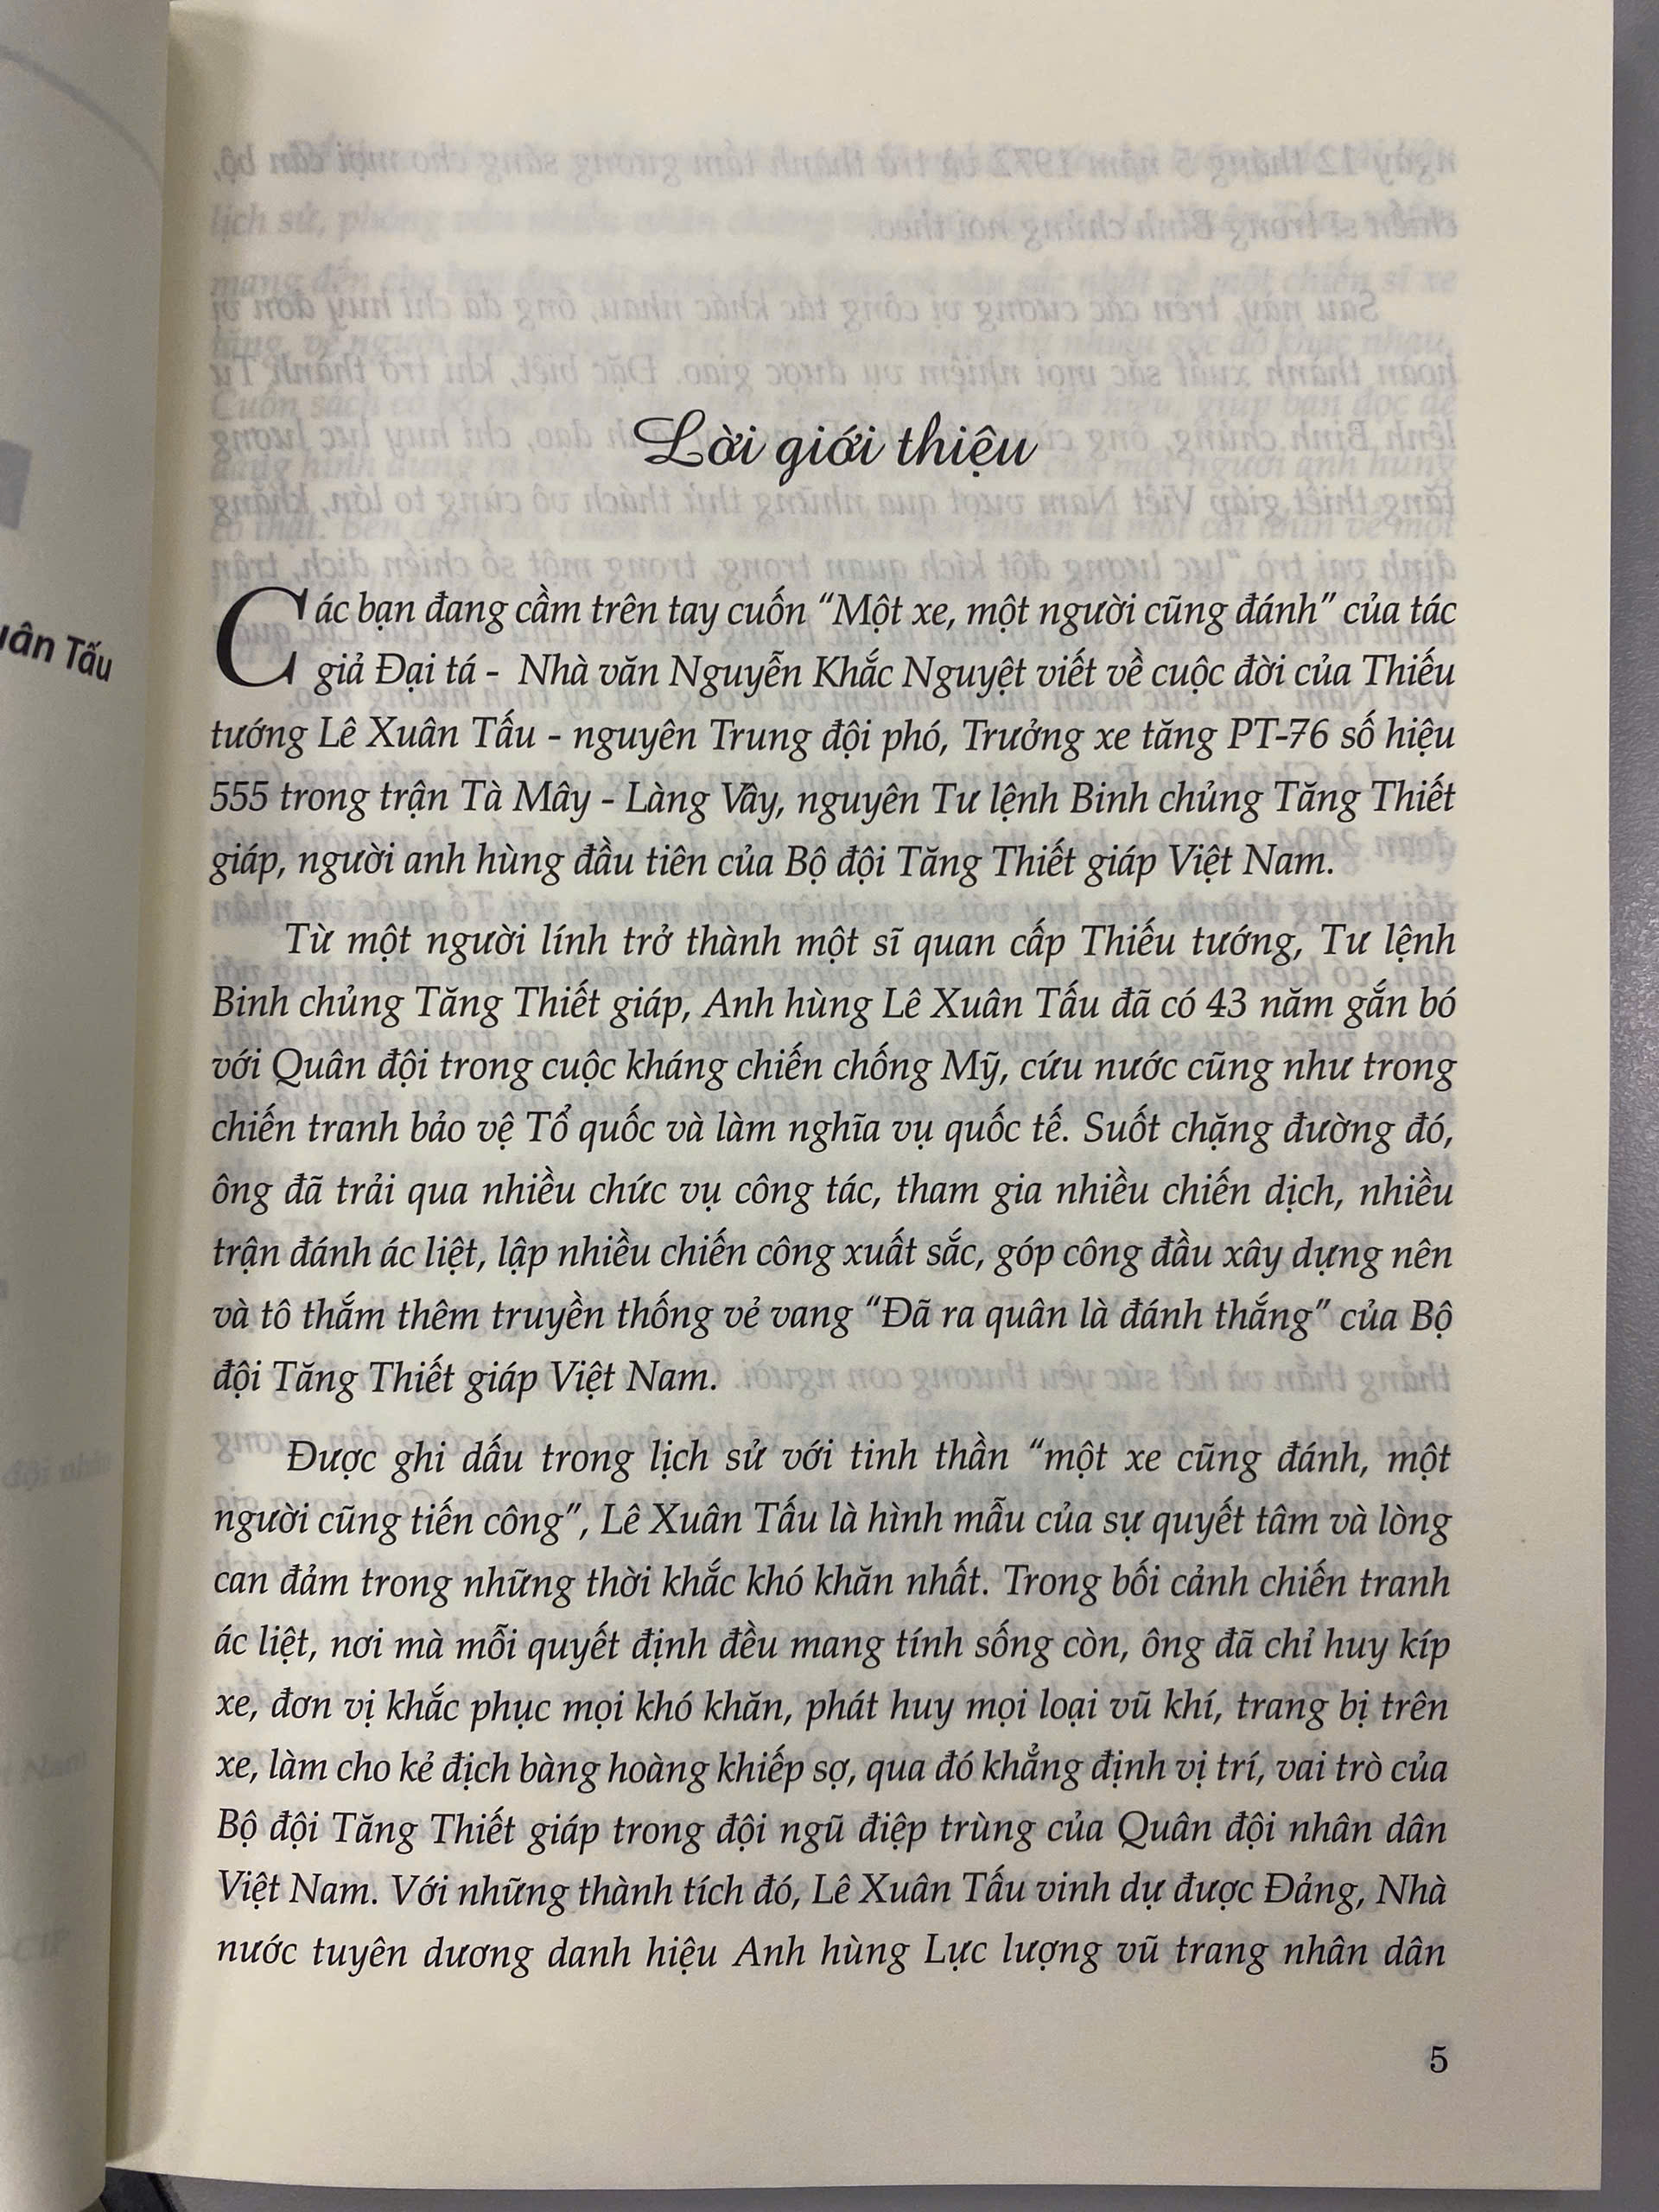 uân Tấu
Lời giới thiệu
Các bạn đang cầm trên tay cuốn “Một xe, một người cũng đánh” của tác
giả Đại tá - Nhà văn Nguyễn Khắc Nguyệt viết về cuộc đời của Thiếu
tướng Lê Xuân Tấu - nguyên Trung đội phó, Trưởng xe tăng PT-76 số hiệu
555 trong trận Tà Mây - Làng Vây, nguyên Tư lệnh Binh chủng Tăng Thiết
giáp, người anh hùng đầu tiên của Bộ đội Tăng Thiết giáp Việt Nam.
Từ một người lính trở thành một sĩ quan cấp Thiếu tướng, Tư lệnh
Binh chủng Tăng Thiết giáp, Anh hùng Lê Xuân Tấu đã có 43 năm gắn bó
với Quân đội trong cuộc kháng chiến chống Mỹ, cứu nước cũng như trong
chiến tranh bảo vệ Tổ quốc và làm nghĩa vụ quốc tế. Suốt chặng đường đó,
ông đã trải qua nhiều chức vụ công tác, tham gia nhiều chiến dịch, nhiều
trận đánh ác liệt, lập nhiều chiến công xuất sắc, góp công đầu xây dựng nên
và tô thắm thêm truyền thống vẻ vang “Đã ra quân là đánh thắng” của Bộ
đội Tăng Thiết giáp Việt Nam.
Được ghi dấu trong lịch sử với tinh thần “một xe cũng đánh, một
người cũng tiến công”, Lê Xuân Tấu là hình mẫu của sự quyết tâm và lòng
can đảm trong những thời khắc khó khăn nhất. Trong bối cảnh chiến tranh
ác liệt, nơi mà mỗi quyết định đều mang tính sống còn, ông đã chỉ huy kíp
xe, đơn vị khắc phục mọi khó khăn, phát huy mọi loại vũ khí, trang bị trên
xe, làm cho kẻ địch bàng hoàng khiếp sợ, qua đó khẳng định vị trí, vai trò của
Bộ đội Tăng Thiết giáp trong đội ngũ điệp trùng của Quân đội nhân dân
Việt Nam. Với những thành tích đó, Lê Xuân Tấu vinh dự được Đảng, Nhà
nước tuyên dương danh hiệu Anh hùng Lực lượng vũ trang nhân dân
5